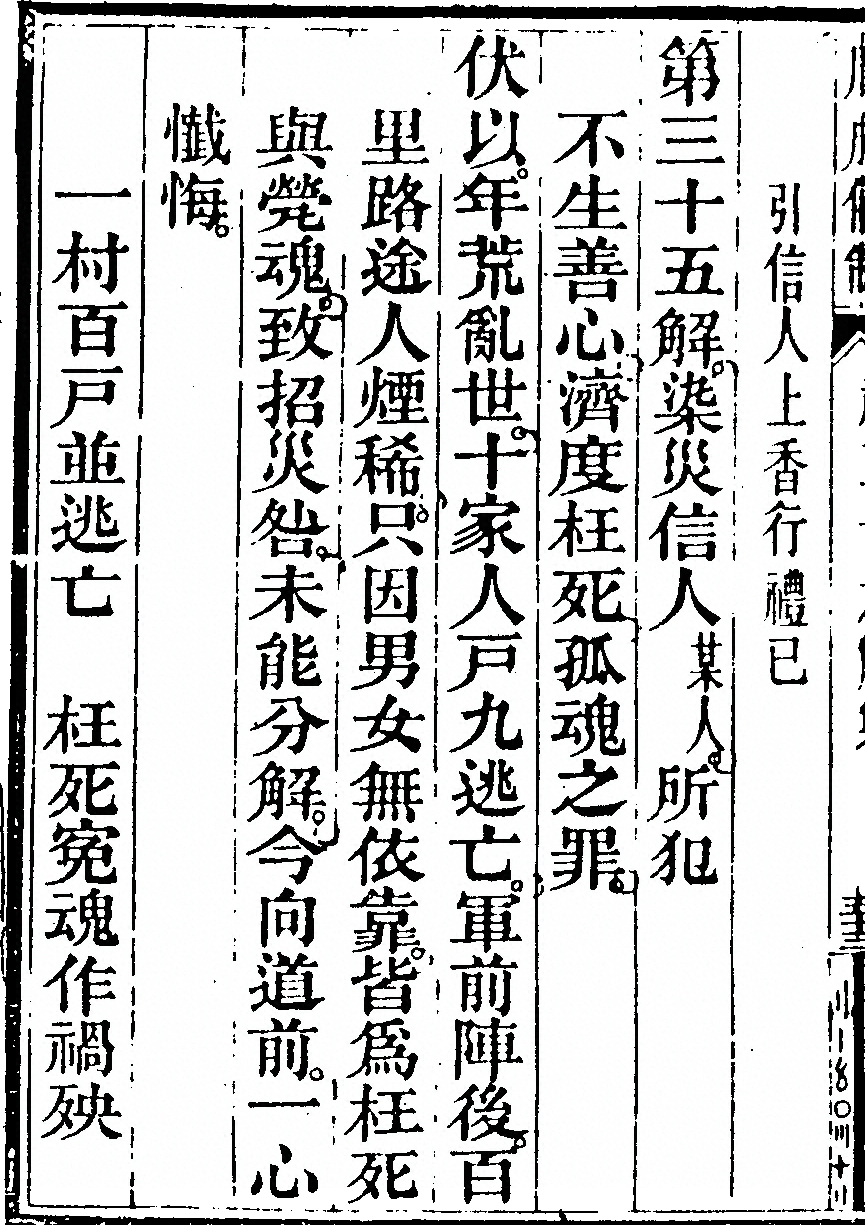 引信人上香行禮已
第三十五解。染災信人某人。所犯
不生善心濟度枉死孤魂之罪。
伏以。年荒亂世。十家人戸九逃亡。軍前陣後。百
里路途人煙稀。只因男女無依靠。皆爲枉死
與煢魂。致招災咎。未能分解。今向道前。一心
懺悔。
一村百戸並逃亡　枉死寃魂作禍殃